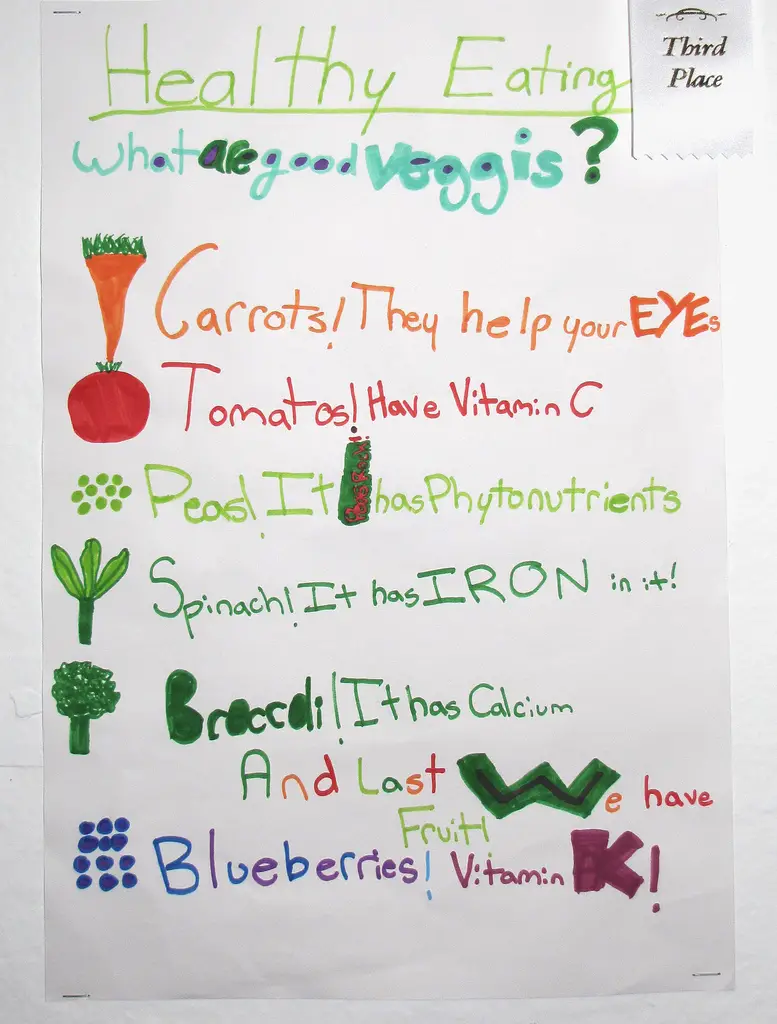 Healthy Eating
Third
Place
What are good Veggis?
Carrots! They help your EYEs
Tomatos! Have Vitamin C
Peas! It has Phytonutrients
Spinach! It has IRON in it!
Broccoli! It has Calcium
And Last We have
Fruit!
Blueberries! Vitamin K!